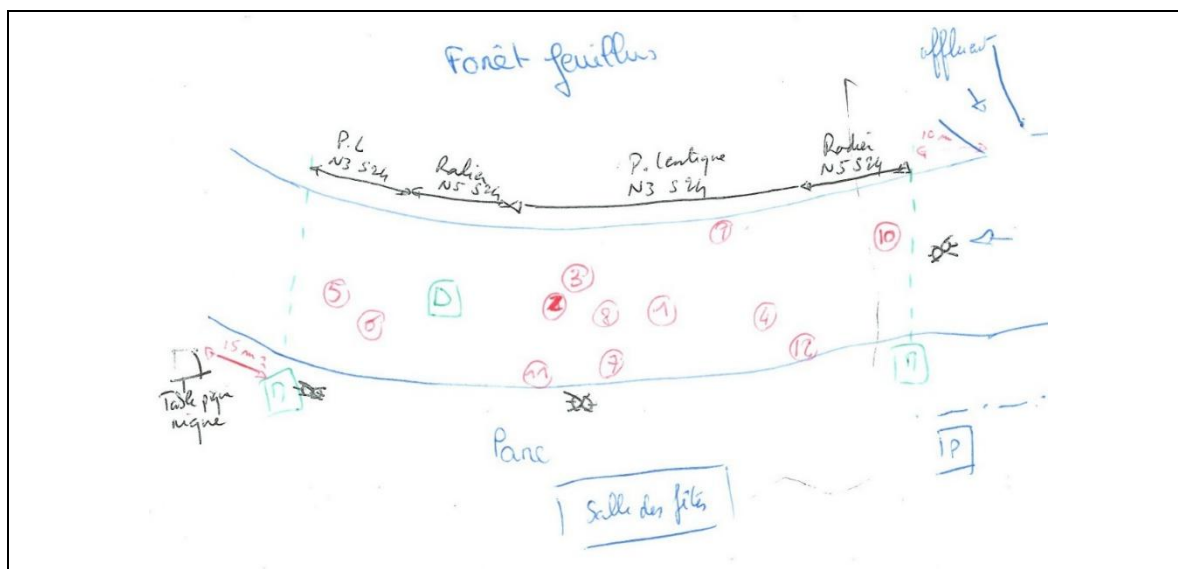 Forêt feuillus
affluent
10 m
P.L
N3 S24
Radier
N5 S24
P. lentique
N3 S24
Radier
N5 S24
9
10
5
6
D
3
2
8
1
4
12
11
7
15 m
Table pique
nique
Parc
Salle des fêtes
P